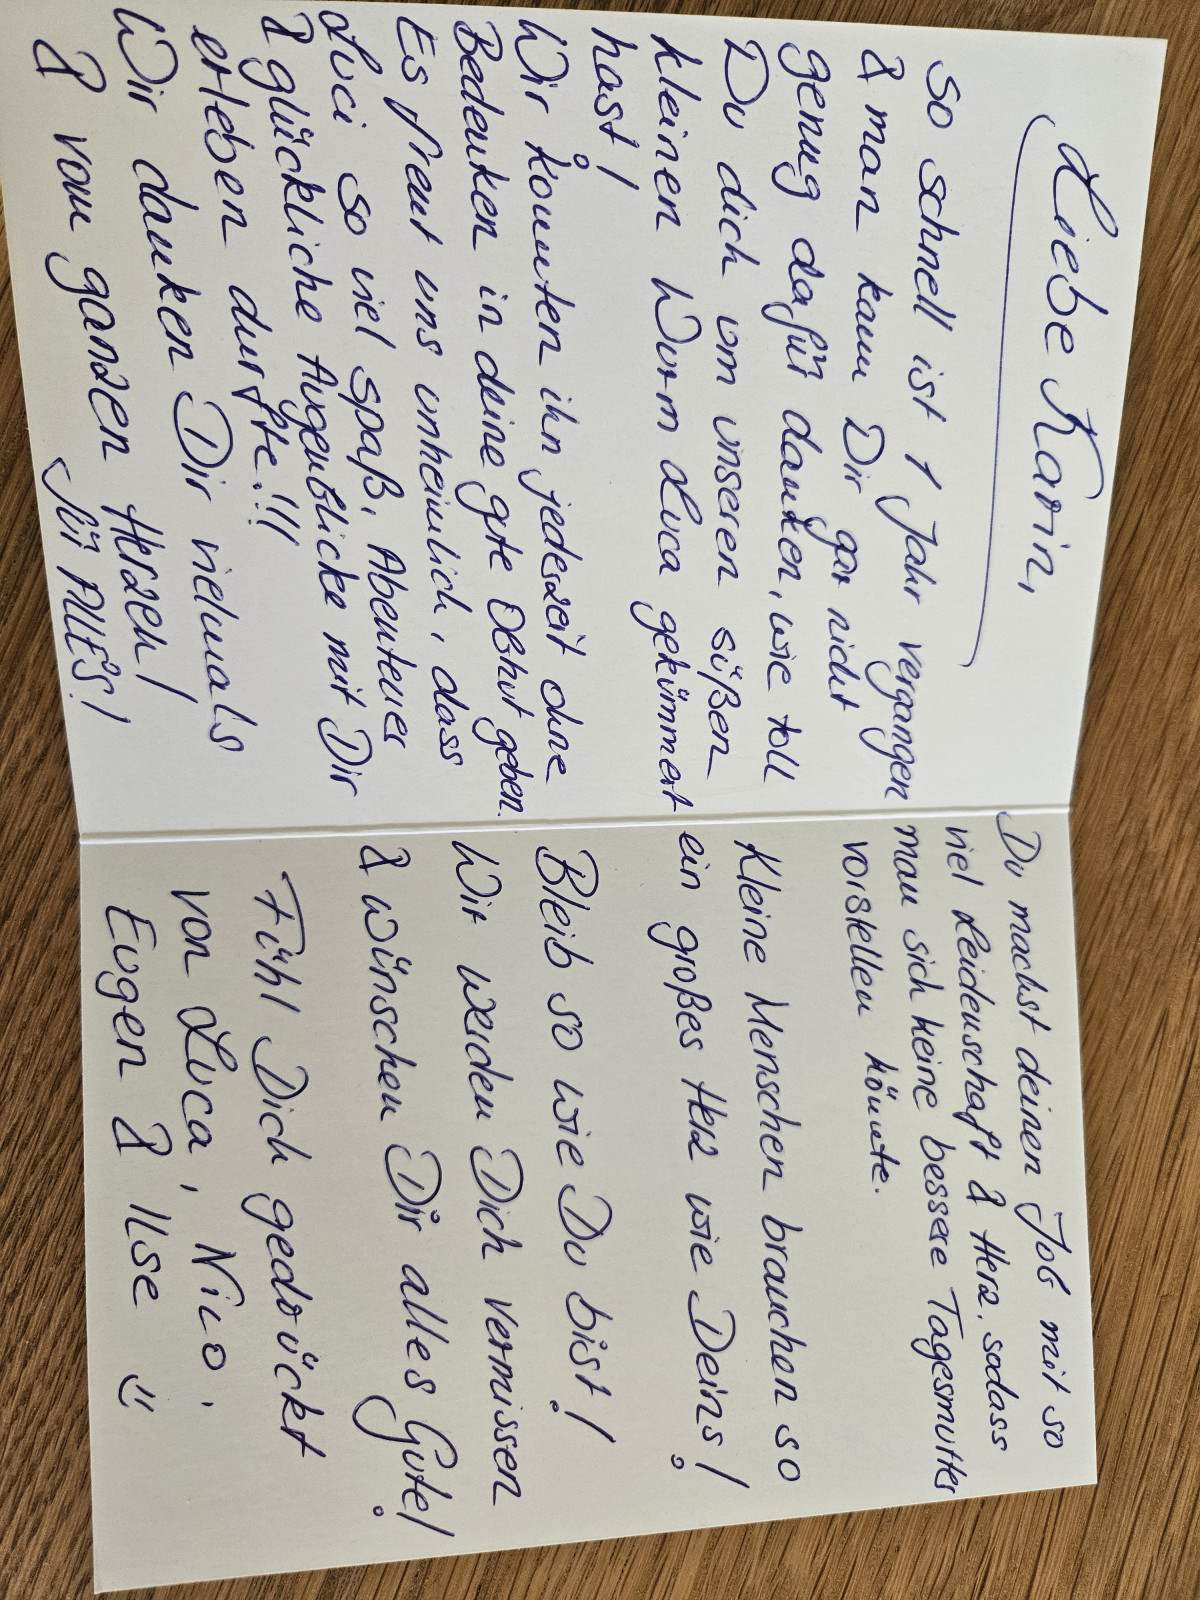 Liebe Karin,
So schnell ist 1 Jahr vergangen
& man kann Dir gar nicht
genug dafür danken, wie toll
Du dich um unseren süßen
kleinen Wurm Luca gekümmert
hast!
Wir konnten ihn jederzeit ohne
Bedenken in deine gute Obhut geben.
Es freut uns unheimlich, dass
Luci so viel Spaß, Abenteuer
& glückliche Augenblicke mit Dir
erleben durfte!!!
Wir danken Dir vielmals
& vom ganzen Herzen!
für ALLES!
Du machst deinen Job mit so
viel Leidenschaft & Herz, sodass
man sich keine bessere Tagesmutter
vorstellen könnte.
Kleine Menschen brauchen so
ein großes Herz wie Deins!
Bleib so wie Du bist!
Wir werden Dich vermissen
& wünschen Dir alles Gute!
Fühl Dich gedrückt
von Luca, Nico,
Eugen & Ilse